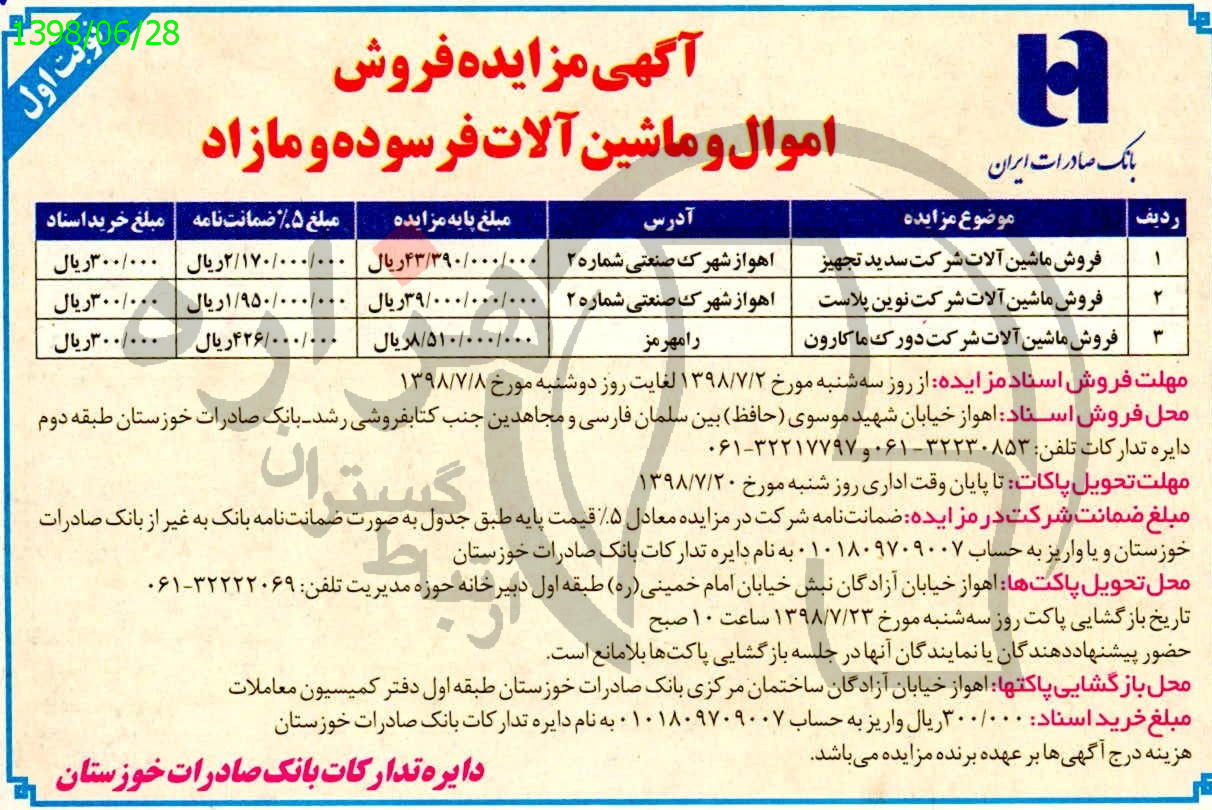 1398/06/28
نوبت اول
آگهی مزایده فروش
اموال و ماشین آلات فرسوده و مازاد
بانک صادرات ایران
ردیف موضوع مزایده آدرس مبلغ پایه مزایده مبلغ ۵٪ ضمانت‌نامه مبلغ خرید اسناد
۱ فروش ماشین آلات شرکت سدید تجهیز اهواز شهرک صنعتی شماره ۲ ۴۳/۳۹۰/۰۰۰/۰۰۰ریال ۲/۱۷۰/۰۰۰/۰۰۰ریال ۳۰۰/۰۰۰ریال
۲ فروش ماشین آلات شرکت نوین پلاست اهواز شهرک صنعتی شماره ۲ ۳۹/۰۰۰/۰۰۰/۰۰۰ریال ۱/۹۵۰/۰۰۰/۰۰۰ریال ۳۰۰/۰۰۰ریال
۳ فروش ماشین آلات شرکت دورک ماکارون رامهرمز ۸/۵۱۰/۰۰۰/۰۰۰ریال ۴۲۶/۰۰۰/۰۰۰ریال ۳۰۰/۰۰۰ریال
مهلت فروش اسناد مزایده: از روز سه‌شنبه مورخ ۱۳۹۸/۷/۲ لغایت روز دوشنبه مورخ ۱۳۹۸/۷/۸
محل فروش اسـناد: اهواز خیابان شهید موسوی (حافظ) بین سلمان فارسی و مجاهدین جنب کتابفروشی رشد-بانک صادرات خوزستان طبقه دوم
دایره تدارکات تلفن: ۳۲۲۳۰۸۵۳-۰۶۱ و ۳۲۲۱۷۷۹۷-۰۶۱
مهلت تحویل پاکات: تا پایان وقت اداری روز شنبه مورخ ۱۳۹۸/۷/۲۰
مبلغ ضمانت شرکت در مزایده: ضمانت‌نامه شرکت در مزایده معادل ۵٪ قیمت پایه طبق جدول به صورت ضمانت‌نامه بانک به غیر از بانک صادرات
خوزستان و یا واریز به حساب ۰۱۰۱۸۰۹۷۰۹۰۰۷ به نام دایره تدارکات بانک صادرات خوزستان
محل تحویل پاکت‌ها: اهواز خیابان آزادگان نبش خیابان امام خمینی(ره) طبقه اول دبیرخانه حوزه مدیریت تلفن: ۳۲۲۲۲۰۶۹-۰۶۱
تاریخ بازگشایی پاکت روز سه‌شنبه مورخ ۱۳۹۸/۷/۲۳ ساعت ۱۰ صبح
حضور پیشنهاددهندگان یا نمایندگان آنها در جلسه بازگشایی پاکت‌ها بلامانع است.
محل بازگشایی پاکتها: اهواز خیابان آزادگان ساختمان مرکزی بانک صادرات خوزستان طبقه اول دفتر کمیسیون معاملات
مبلغ خرید اسناد: ۳۰۰/۰۰۰ریال واریز به حساب ۰۱۰۱۸۰۹۷۰۹۰۰۷ به نام دایره تدارکات بانک صادرات خوزستان
هزینه درج آگهی‌ها بر عهده برنده مزایده می‌باشد.
دایره تدارکات بانک صادرات خوزستان
هزاره
گستران
ارتباط